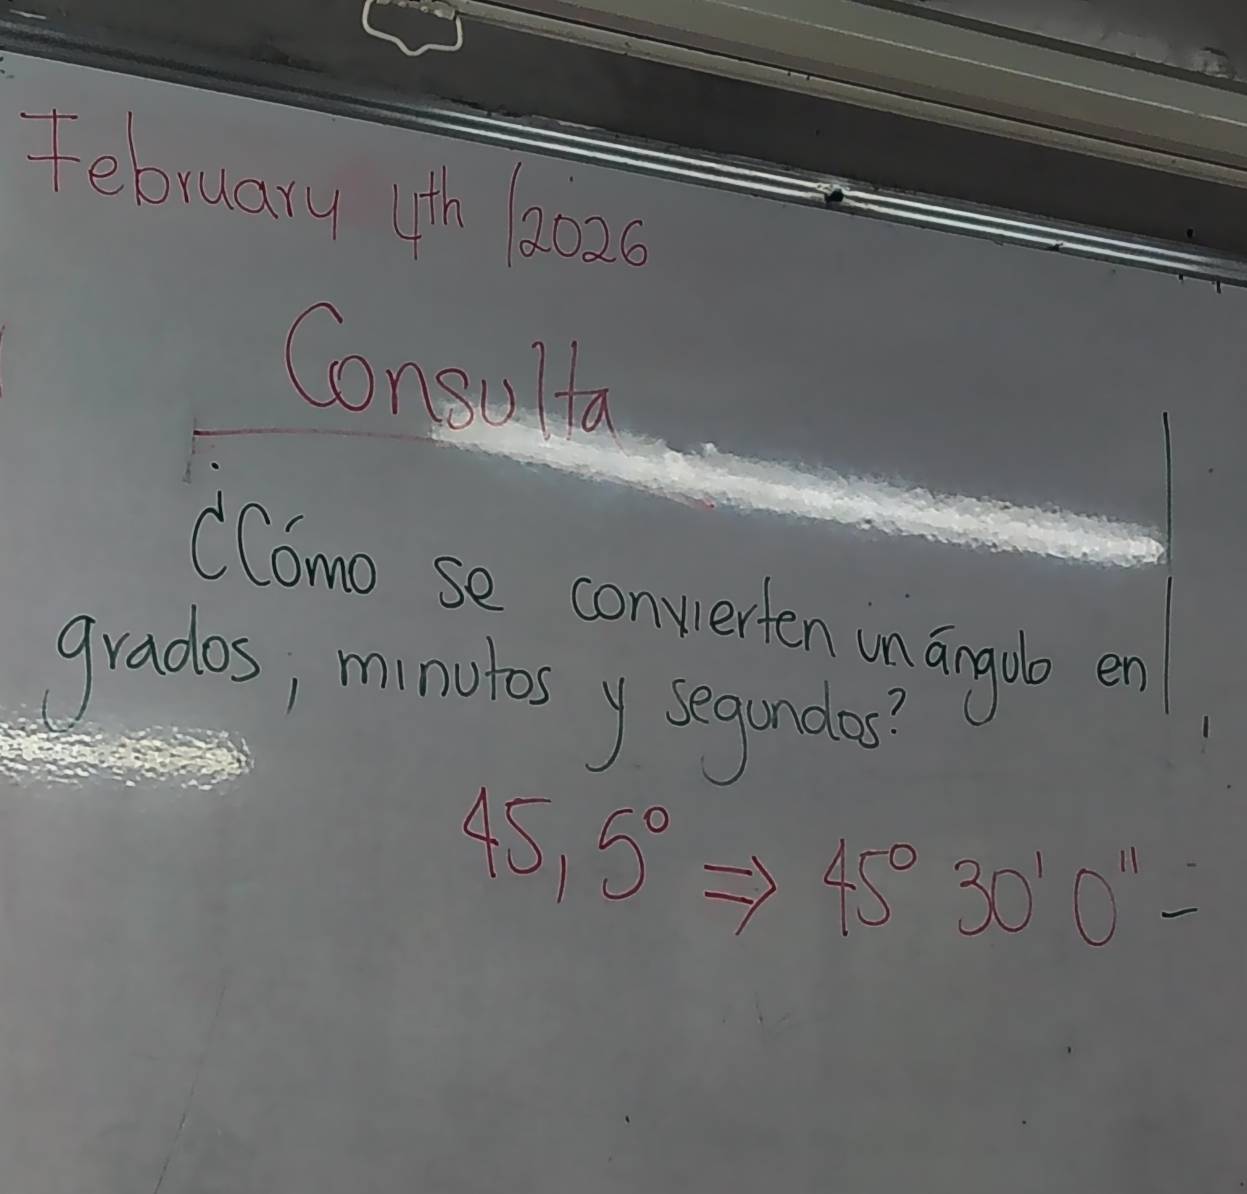 February 4th /2026
Consulta
¿Cómo se convierten un ángulo en
grados, minutos y segundos?
45,5° ⇒ 45° 30' 0" =